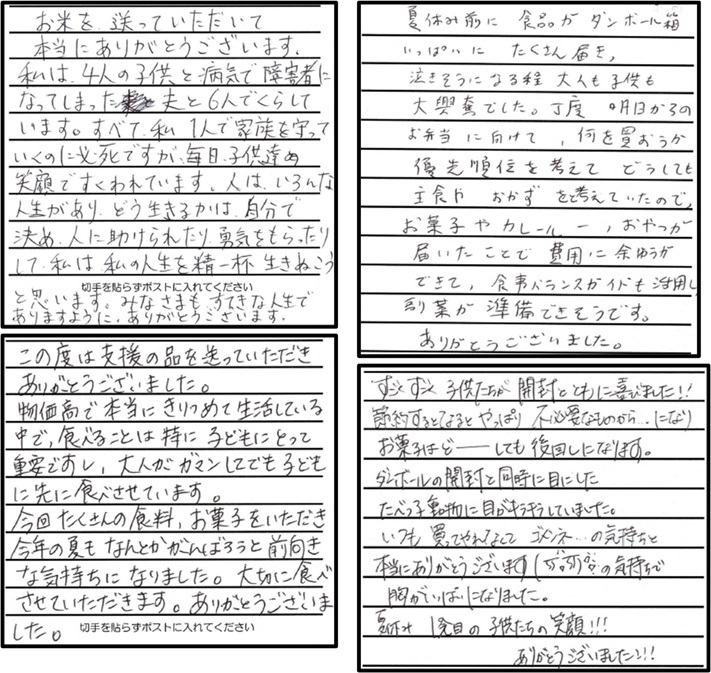 お米を送っていただいて
本当にありがとうございます。
私は、4人の子供と病気で障害者に
なってしまった夫と6人でくらして
います。すべて私1人で家族を守って
いくのに必死ですが、毎日、子供達の
笑顔ですくわれています。人は、いろんな
人生があり、どう生きるかは、自分で
決め、人に助けられたり、勇気をもらったり
して、私は私の人生を精一杯生きぬこう
切手を貼らずポストに入れてください
と思います。みなさまも、すてきな人生で
ありますように。ありがとうございます。
夏休み前に食品がダンボール箱
いっぱいにたくさん届き、
泣きそうになる程大人も子供も
大興奮でした。丁度明日からの
お弁当に向けて、何を買おうか
優先順位を考えてどうしても
主食やおかずをと考えていたので、
お菓子やカレールー、おやつが
届いたことで費用に余ゆうが
できて、食事バランスガイドも活用し
副菜が準備できそうです。
ありがとうございました。
この度は支援の品を送っていただき
ありがとうございました。
物価高で本当にきりつめて生活している
中で、食べることは特に子どもにとって
重要ですし、大人がガマンしてでも子ども
に先に食べさせています。
今回たくさんの食料、お菓子をいただき
今年の夏もなんとかがんばろうと前向き
な気持ちになりました。大切に食べ
させていただきます。ありがとうございま
した。
切手を貼らずポストに入れてください
すごくすごく子供たちが開封とともに喜びました!!
節約するとなるとやっぱり不必要なものから…になり
お菓子はどーーしても後回しになります。
ダンボールの開封と同時に目にした
たべっ子動物に目がキラキラしていました。
いつも買ってやれなくてゴメンネ…の気持ちと
本当にありがとうございますの気持ちで
胸がいっぱいになりました。
夏休み1発目の子供たちの笑顔!!!
ありがとうございました!!!